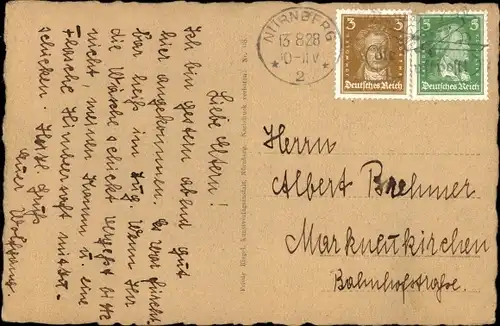 Liebe Eltern!
Ich bin gestern abend gut
hier angekommen. Es war furcht-
bar heiß im Zug. Wenn Ihr
die Wäsche schickt vergeßt bitte
nicht, meinen Kamm u. eine
Flasche Himbeersaft mitzu-
schicken. Herzl. Grüße
Euer Wolfgang
NÜRNBERG
13.8.28
10-11 V
* 2 *
3
3
Deutsches Reich
5
5
Deutsches Reich
Herrn
Albert Brehmer
Markneukirchen
Bahnhofstraße.
Nürnberg.